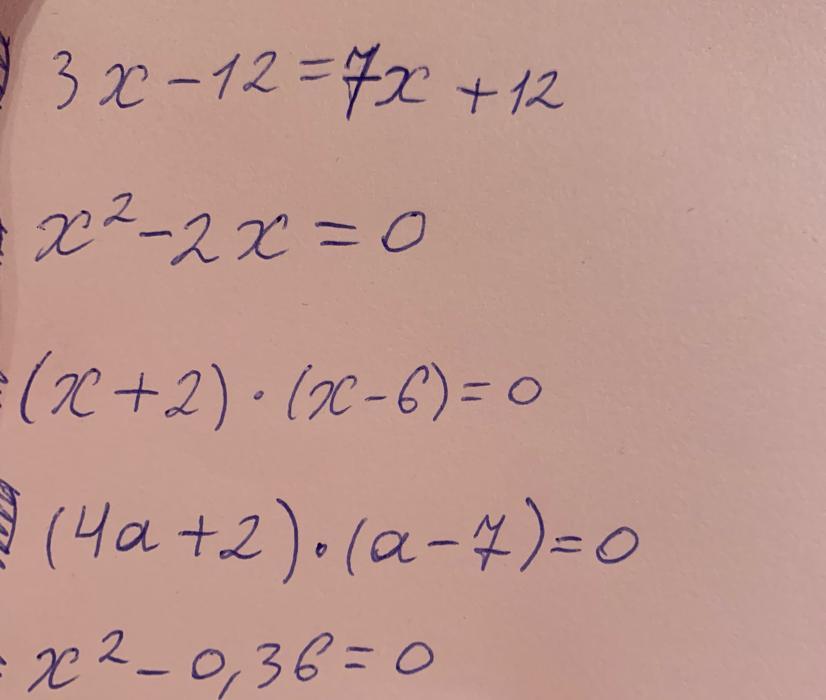 3x-12=7x+12
x²-2x=0
(x+2)·(x-6)=0
(4a+2)·(a-7)=0
x²-0,36=0